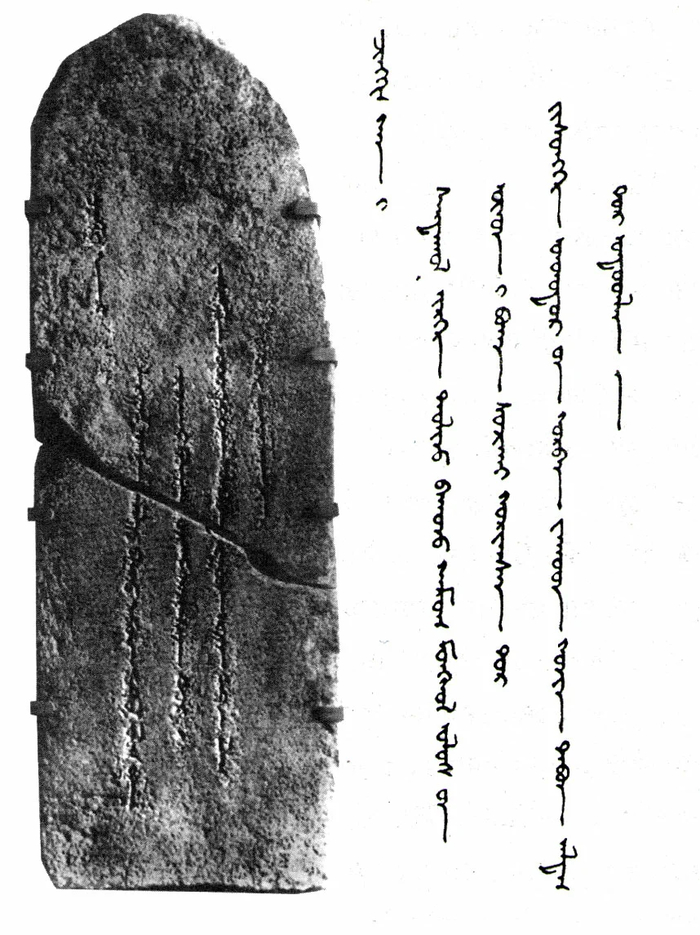 ᠴᠢᠩᠭᠢᠰ ᠬᠠᠨ ᠢ
ᠰᠠᠷᠲᠠᠭᠤᠯ ᠢᠷᠭᠡ ᠳᠠᠭᠤᠯᠢᠵᠤ ᠪᠠᠭᠤᠵᠤ ᠬᠠᠮᠤᠭ ᠮᠣᠩᠭᠣᠯ ᠤᠯᠤᠰ ᠤᠨ
ᠨᠣᠶᠠᠳ ᠢ ᠪᠤᠬᠠ ᠰᠤᠴᠢᠭᠠᠢ ᠬᠤᠷᠢᠭᠰᠠᠨ ᠳᠤᠷ
ᠶᠢᠰᠦᠩᠭᠡ ᠣᠨᠲᠤᠳᠤᠷᠤᠨ ᠭᠤᠷᠪᠠᠨ ᠵᠠᠭᠤᠳ ᠭᠤᠴᠢᠨ ᠲᠠᠪᠤᠨ ᠠᠯᠳᠠᠰ ᠲᠤᠷ
ᠣᠨᠲᠤᠳᠤᠯᠠᠭ᠎ᠠ